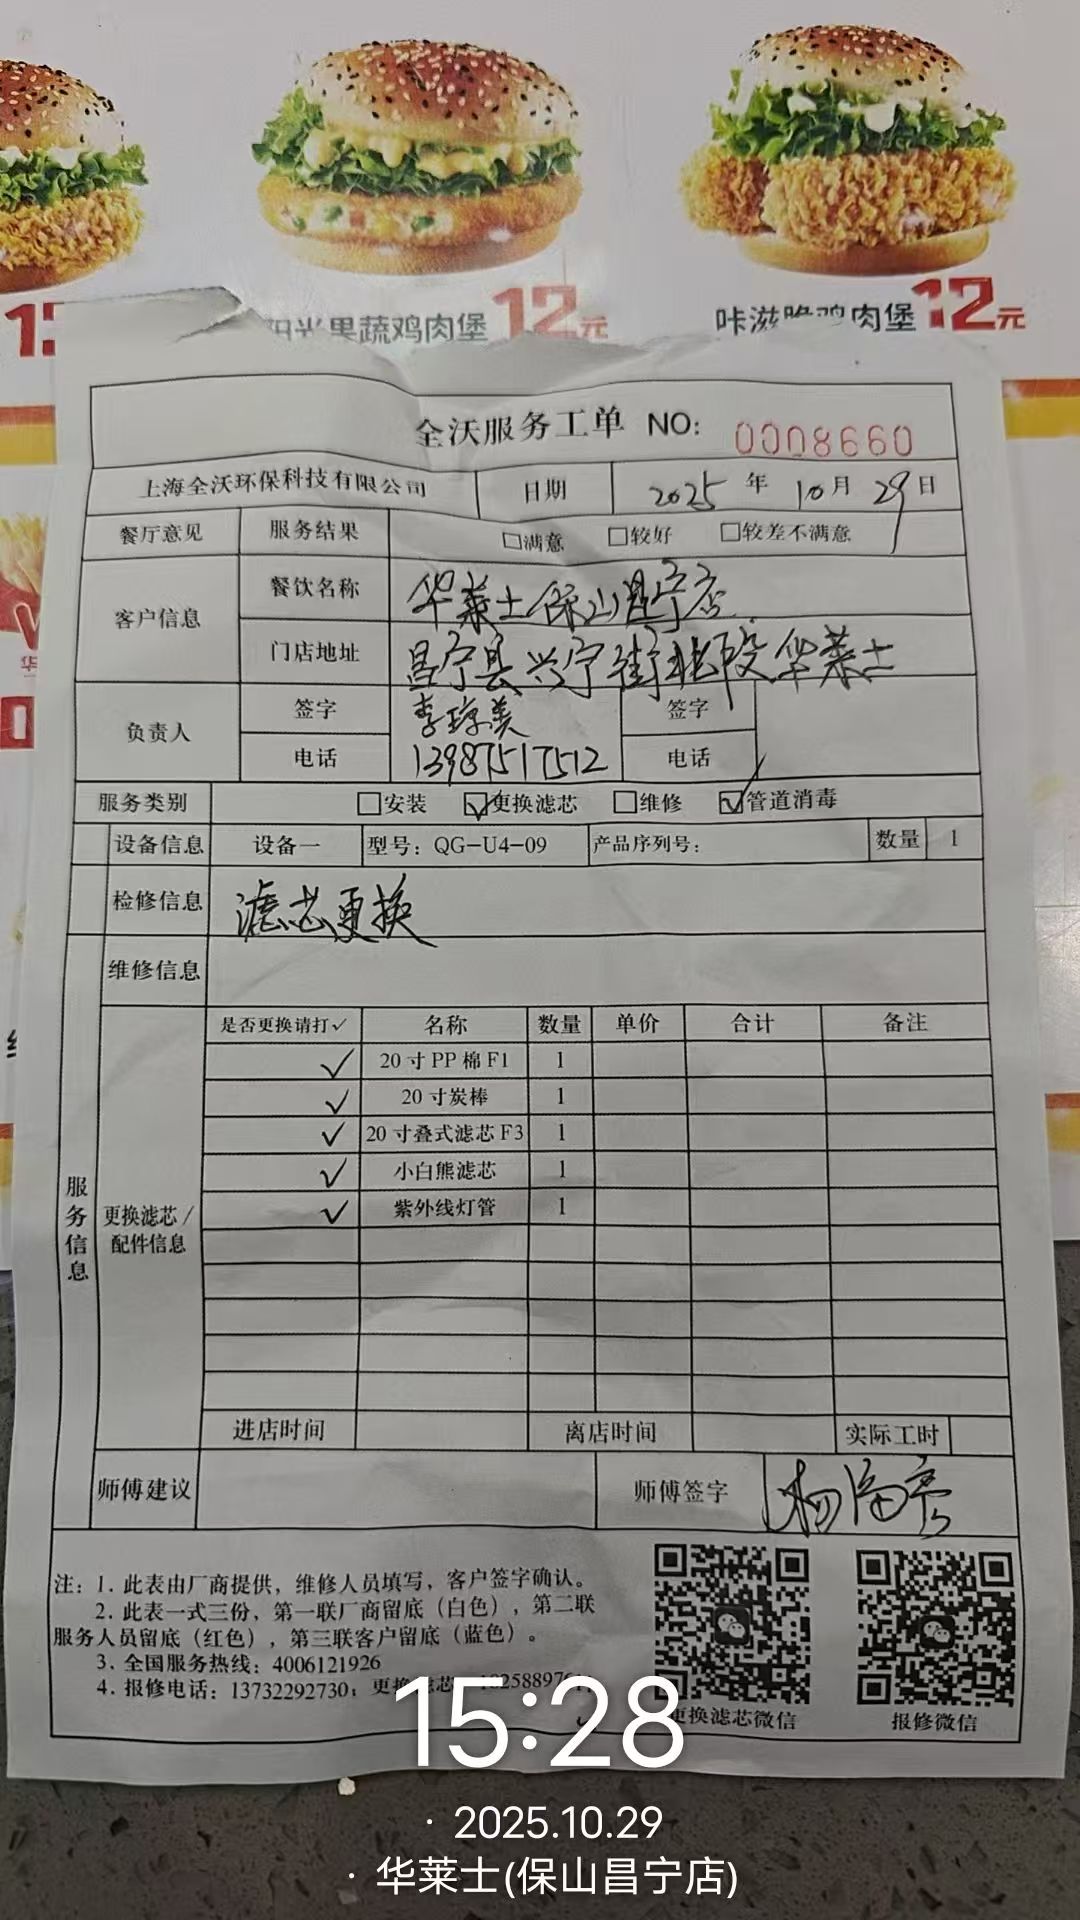 12元
阳光果蔬鸡肉堡 12元
咔滋脆鸡肉堡 12元
全沃服务工单 NO: 0008660
上海全沃环保科技有限公司 日期 2025 年 10 月 29 日
餐厅意见 服务结果 □满意 □较好 □较差不满意
客户信息 餐饮名称 华莱士保山昌宁店
门店地址 昌宁县兴宁街北段华莱士
负责人 签字 李琼美 签字
电话 13987517512 电话
服务类别 □安装 ☑更换滤芯 □维修 ☑管道消毒
设备信息 设备一 型号：QG-U4-09 产品序列号： 数量 1
检修信息 滤芯更换
维修信息
服务信息
更换滤芯/配件信息
是否更换请打✓ 名称 数量 单价 合计 备注
✓ 20寸PP棉F1 1
✓ 20寸炭棒 1
✓ 20寸叠式滤芯F3 1
✓ 小白熊滤芯 1
✓ 紫外线灯管 1
进店时间 离店时间 实际工时
师傅建议 师傅签字
注：1. 此表由厂商提供，维修人员填写，客户签字确认。
2. 此表一式三份，第一联厂商留底（白色），第二联
服务人员留底（红色），第三联客户留底（蓝色）。
3. 全国服务热线：4006121926
4. 报修电话：13732292730；更换滤芯
更换滤芯微信 报修微信
15:28
· 2025.10.29
· 华莱士(保山昌宁店)